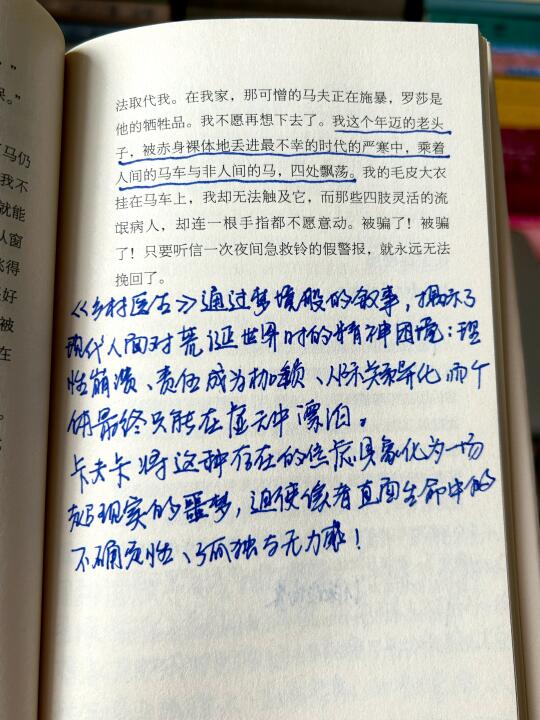 法取代我。在我家，那可憎的马夫正在施暴，罗莎是
他的牺牲品。我不愿再想下去了。我这个年迈的老头
子，被赤身裸体地丢进最不幸的时代的严寒中，乘着
人间的马车与非人间的马，四处飘荡。我的毛皮大衣
挂在马车上，我却无法触及它，而那些四肢灵活的流
氓病人，却连一根手指都不愿意动。被骗了！被骗
了！只要听信一次夜间急救铃的假警报，就永远无法
挽回了。
《乡村医生》通过梦境般的叙事，揭示了
现代人面对荒诞世界时的精神困境：理
性崩溃、责任成为枷锁、人际关系异化，而个
体最终只能在虚无中漂泊。
卡夫卡将这种存在的焦虑具象化为一场
超现实的噩梦，迫使读者直面生命中的
不确定性、孤独与无力感！
”
保。”
马仍
我不
就能
从窗
飞得
好
被
在